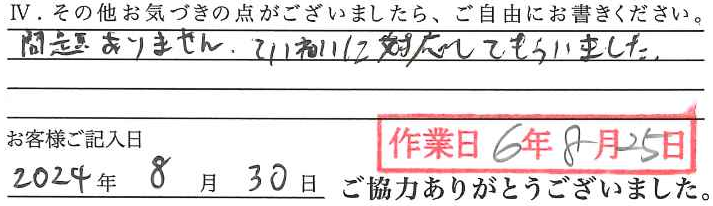 Ⅳ．その他お気づきの点がございましたら、ご自由にお書きください。
問題ありません. ていねいに対応してもらいました.
お客様ご記入日
作業日 6年8月25日
2024年 8 月 30 日 ご協力ありがとうございました。